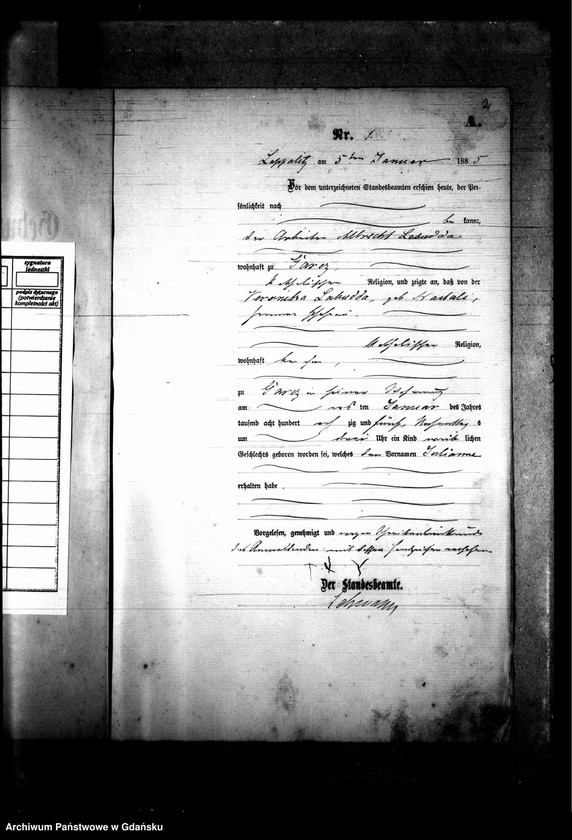 2
A.
Nr. 1.
am 5ten Januar 1885
Vor dem unterzeichneten Standesbeamten erschien heute, der Per-
sönlichkeit nach
be kannt,
der Arbeiter Albrecht Labudda
wohnhaft zu
katholischer Religion, und zeigte an, daß von der
Veronika Labudda, geb.
seiner Ehefrau
katholischer Religion,
wohnhaft bei ihm,
zu in seiner Wohnung
am ten Januar des Jahres
tausend acht hundert acht zig und fünf Nachmittag s
um drei Uhr ein Kind weib lichen
Geschlechts geboren worden sei, welches den Vornamen Julianne
erhalten habe.
Vorgelesen, genehmigt und wegen Schreibensunkunde
des Anmeldenden mit dessen Handzeichen versehen
Der Standesbeamte.
sygnatura
jednostki
podpis dyżurnego
(potwierdzenie
kompletności akt)
Archiwum Państwowe w Gdańsku